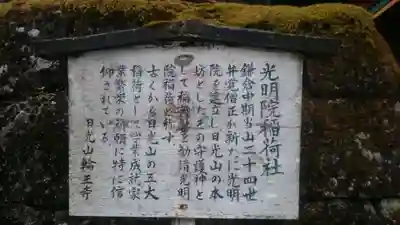 光明院稲荷社
鎌倉中期当山二十四世
弁覚僧正が新たに光明
院を建立し日光山の本
坊としたその守護神と
して稲荷を勧請光明
院稲荷と称す
古くから日光山の五大
稲荷として
業繁栄の祈願に特に信
仰されている
日光山輪王寺